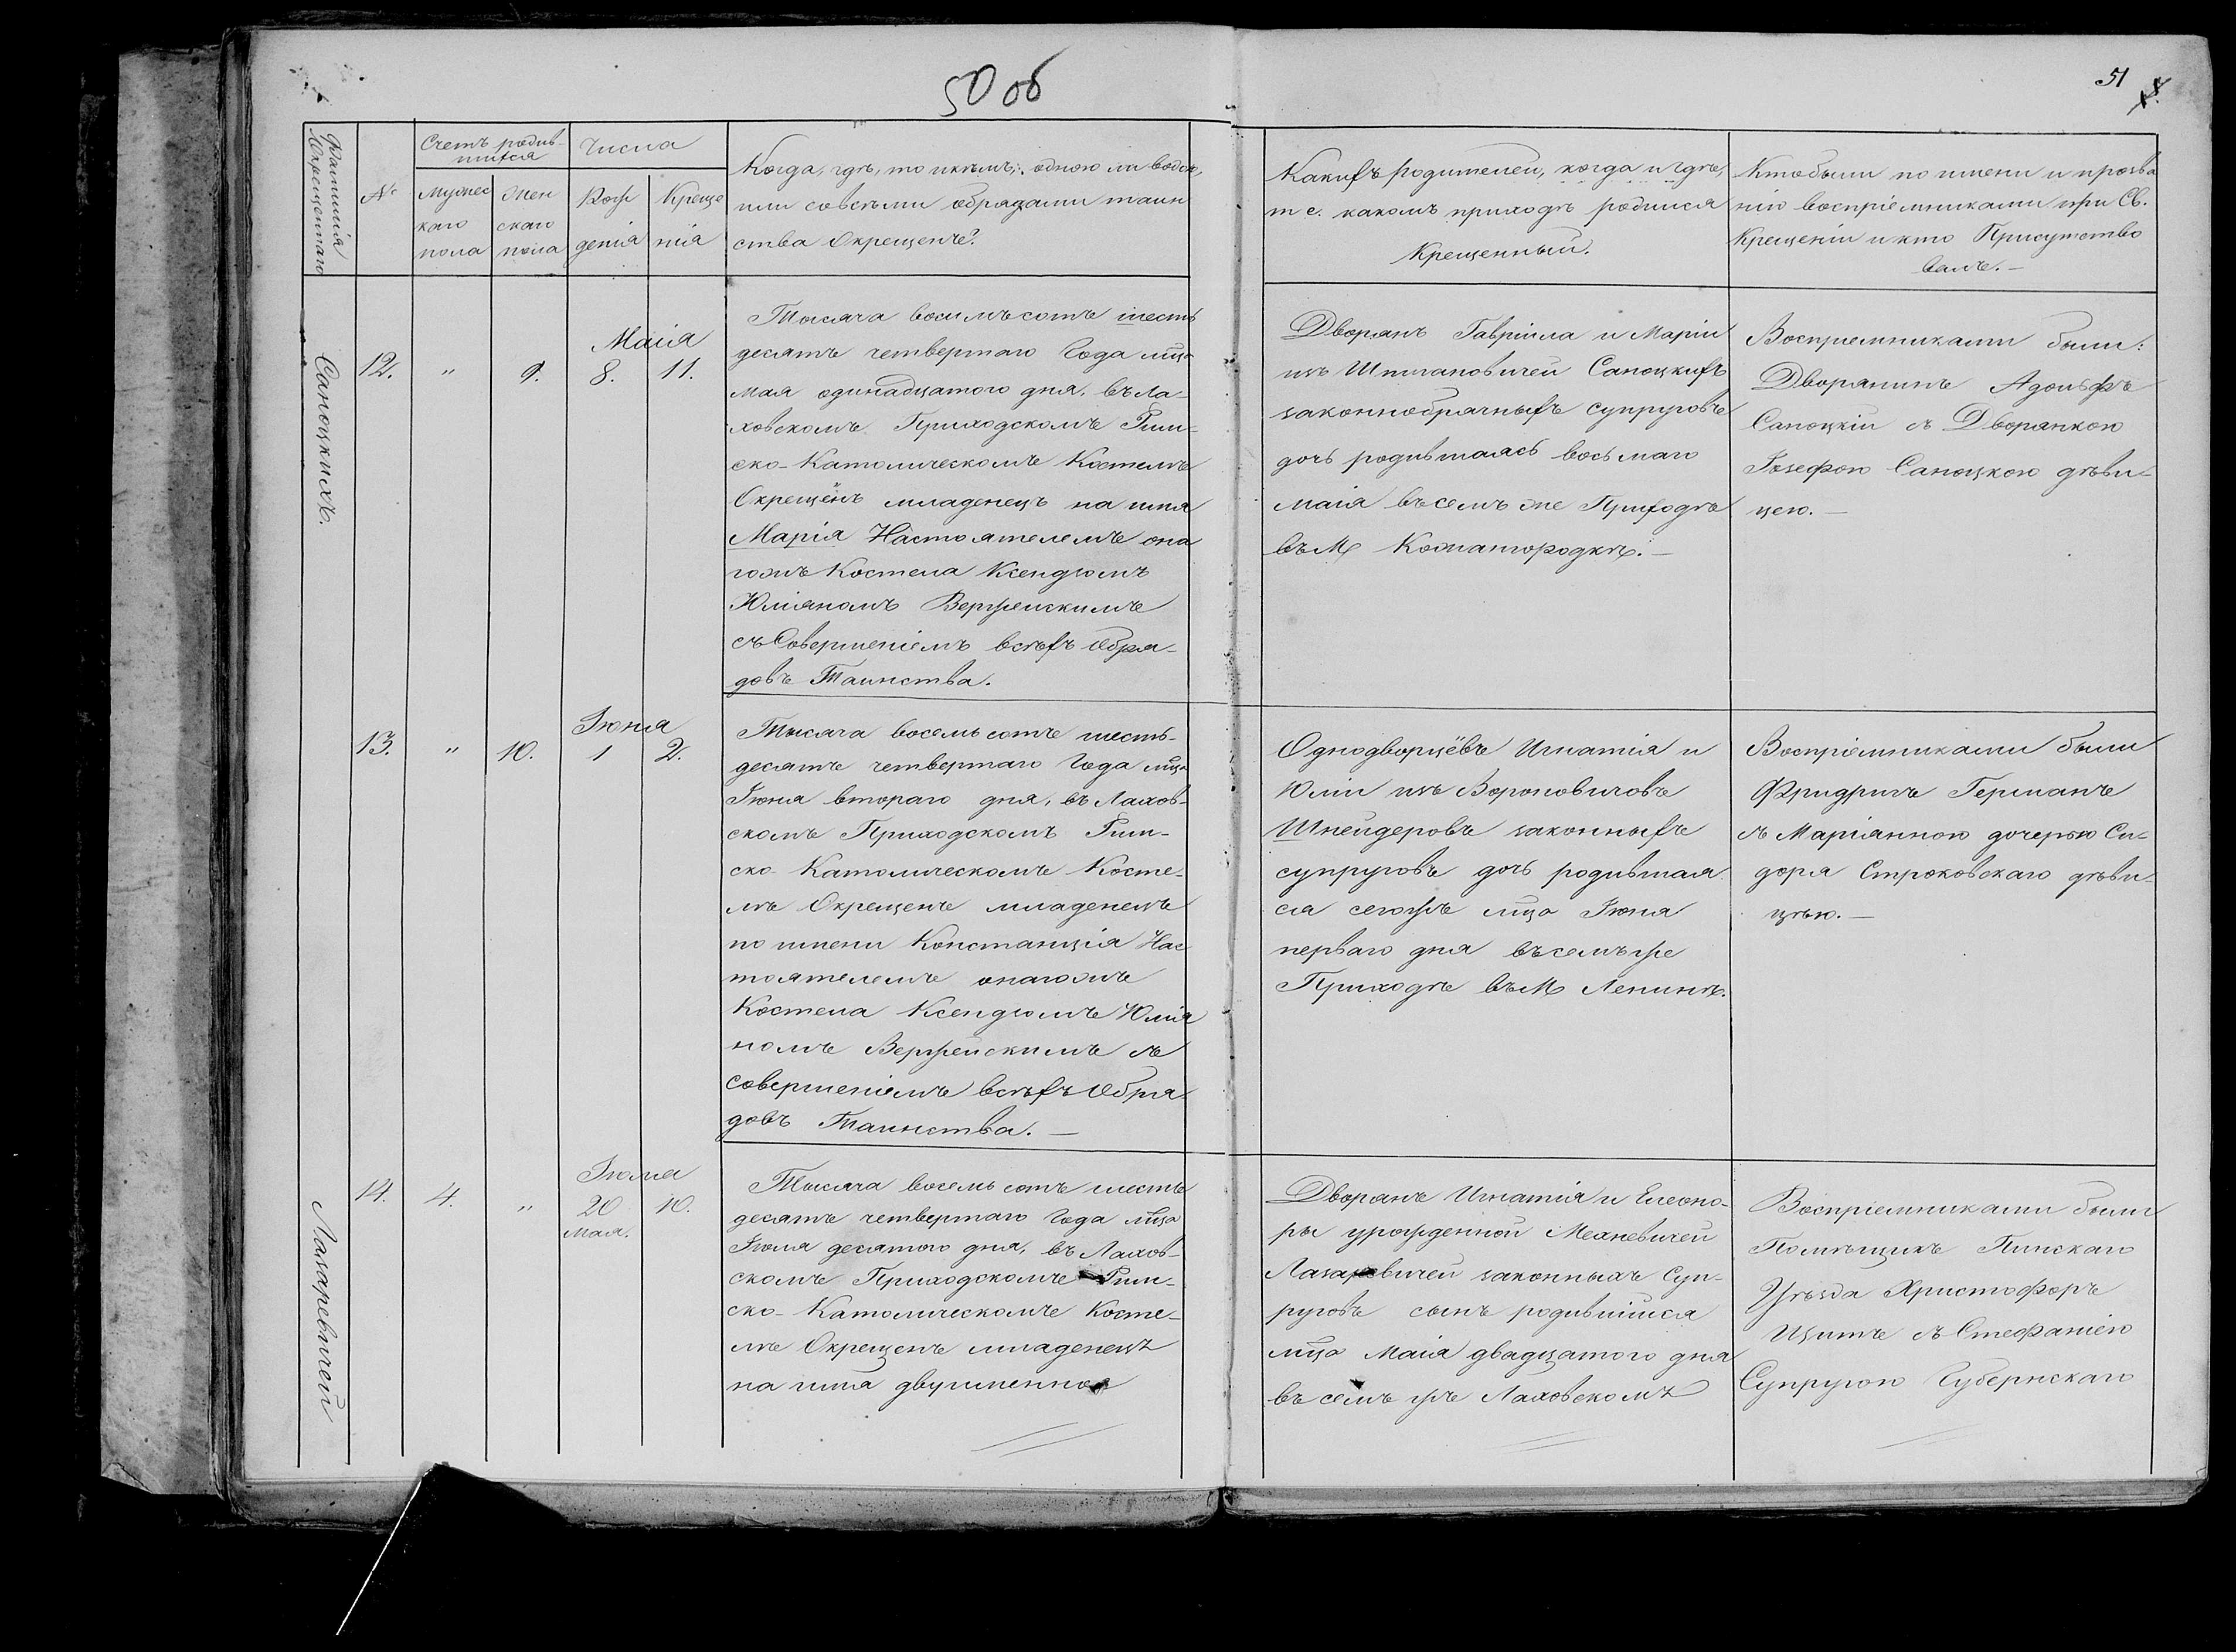 50 об
51
Фамилія
Окрещеннаго
№
Счетъ родив-
шихся
Числа
Мужес
каго
пола
Жен
скаго
пола
Рож
денія
Креще
нія
Когда, гдѣ, кто и кѣмъ, одною ли водою,
или со всѣми обрядами таин
ства Окрещенъ?
Какихъ родителей, когда и гдѣ,
т е. какомъ приходѣ родился
Крещенный.
Кто были по имени и прозва
нію воспріемниками при Св.
Крещеніи и кто Присутство
валъ. —
Саноцкихъ.
12.
"
9.
Маія
8.
11.
Тысяча восимъ сотъ шесть
десятъ четвертаго Года мца
мая одинадцатого дня, въ Ла-
ховскомъ Приходскомъ Рим-
ско-Католическомъ Костелѣ
Окрещёнъ младенецъ на имя
Марія Настоятелемъ она
гожъ Костела Ксендзомъ
Юліяномъ Вержейскимъ
съ Совершеніемъ всѣхъ Обря-
довъ Таинства.
Дворянъ Гавріила и Маріи
изъ Шпилановичей Саноцкихъ
законнобрачныхъ супруговъ
дочь родившаясь восьмаго
маія въ семъ же Приходѣ
въ М Кожангородкѣ. —
Воспріемниками были:
Дворянинъ Адольфъ
Саноцкій съ Дворянкою
Іозефою Саноцкою дѣви-
цею. —
13.
"
10.
Іюня
1
2.
Тысяча восемь сотъ шесть-
десятъ четвертаго Года мца
Іюня втораго дня, въ Лахов-
скомъ Приходскомъ Рим-
ско Католическомъ Косте-
лѣ Окрещенъ младенецъ
по имени Констанція Нас
тоятелемъ онагожъ
Костела Ксендзомъ Юлія
номъ Вержейскимъ съ
совершеніемъ всѣхъ Обря
довъ Таинства. —
Однодворцёвъ Игнатія и
Юліи изъ Вороновичовъ
Шнейдеровъ законныхъ
супруговъ дочь родившая
ся сегожъ мца Іюня
перваго дня въ семъ же
Приходѣ въ М Ленинѣ.
Воспріемниками были
Фридрихъ Германъ
съ Маріянною дочерью Си-
дора Строковскаго дѣви-
цѣю. —
Лазаревичей
14.
4.
"
Іюля
20
Мая.
10.
Тысяча восемь сотъ шесть
десятъ четвертаго Года мца
Іюля десятого дня, въ Лахов-
скомъ Приходскомъ Рим-
ско-Католическомъ Косте-
лѣ Окрещенъ младенецъ
на имя двуименное
Дворянъ Игнатія и Елеоно-
ры урожденной Механевичей
Лазаревичей законныхъ Суп-
руговъ сынъ родившійся
мца Маія двадцатого дня
въ семъ же Лаховскомъ
Воспріемниками были
Помѣщикъ Пинскаго
Уѣзда Христофоръ
Щитъ съ Стефаніею
Супругою Губернскаго